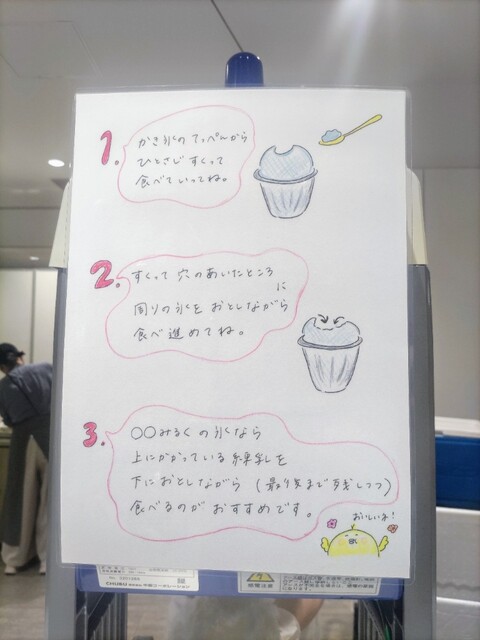 1.
かき氷のてっぺんから
ひとさじすくって
食べていってね。
2.
すくって穴のあいたところに
周りの氷をおとしながら
食べ進めてね。
3.
〇〇みるくの氷なら
上にかかっている練乳を
下におとしながら(最後まで残しつつ)
食べるのがおすすめです。
おいしいね!